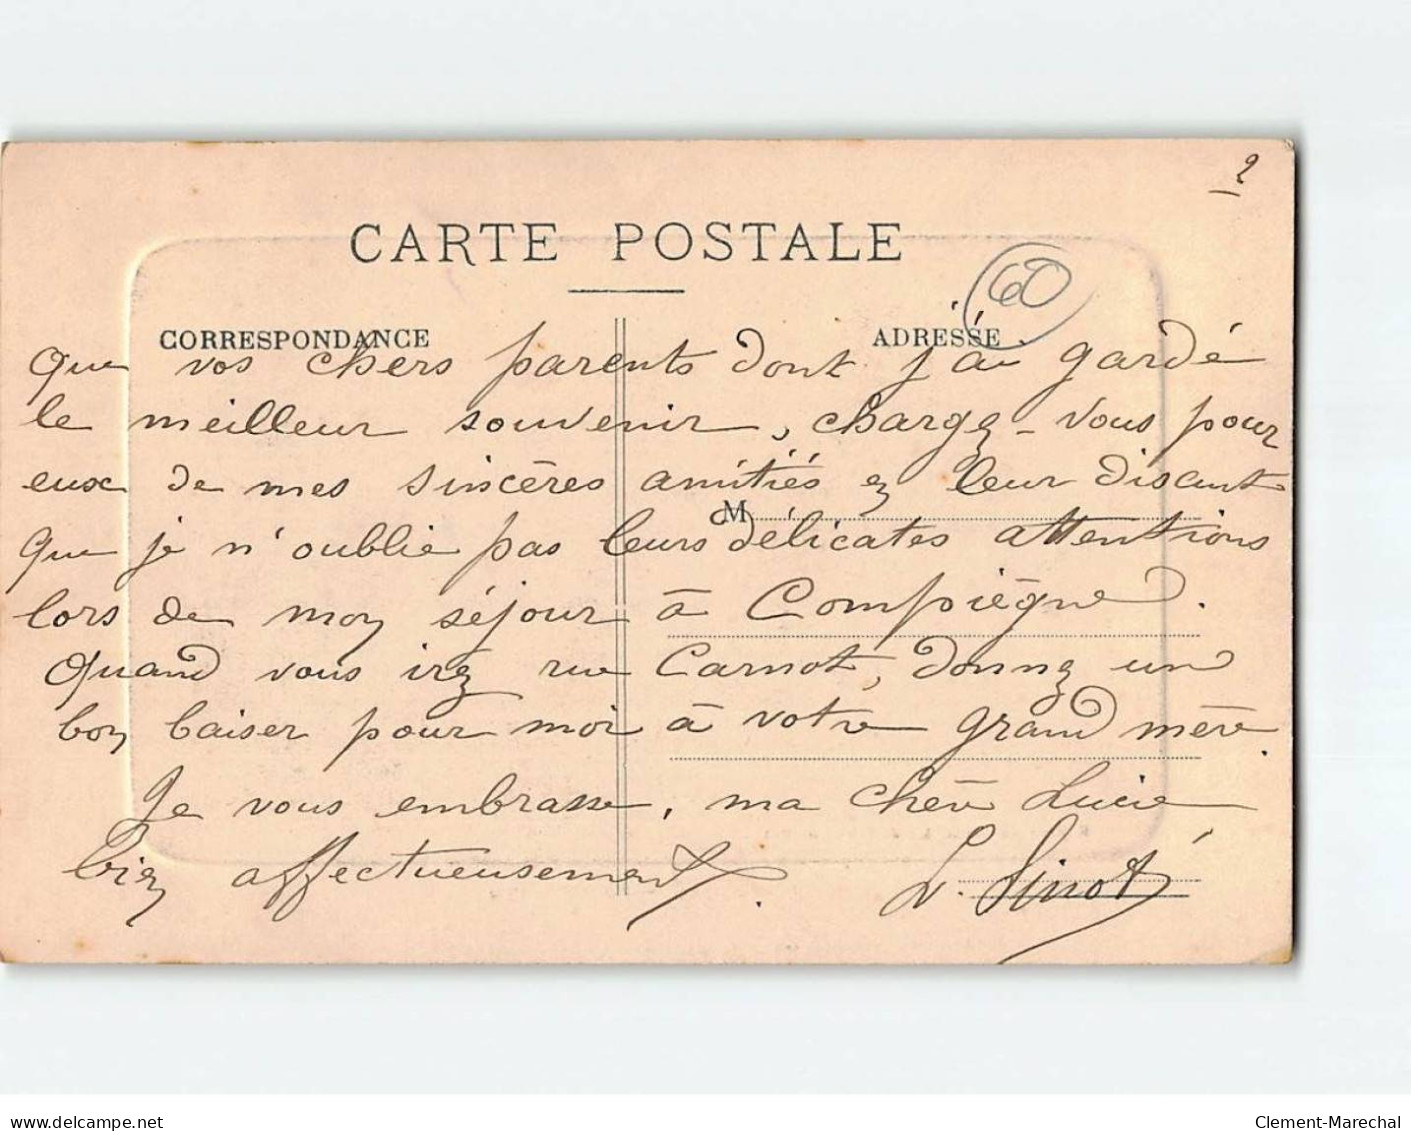 2
CARTE POSTALE
60
CORRESPONDANCE
ADRESSE
que vos chers parents dont j'ai gardé
le meilleur souvenir, chargez-vous pour
eux de mes sincères amitiés en leur disant
M
que je n'oublie pas leurs délicates attentions
lors de mon séjour à Compiègne.
Quand vous irez rue Carnot, donnez un
bon baiser pour moi à votre grand mère.
Je vous embrasse, ma chère Lucie
bien affectueusement.
L. Sinot
www.delcampe.net
Clement-Marechal